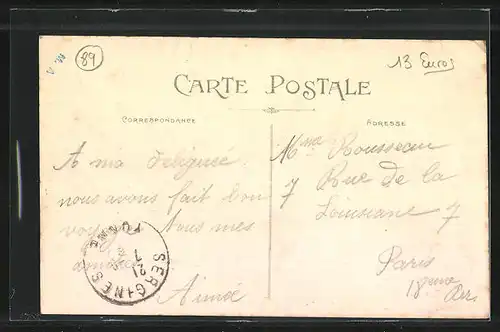 89
13 Euros
CARTE POSTALE
CORRESPONDANCE
ADRESSE
A ma
nous avons fait bon
voy Nous mes
Aimée
SERGINES
YONNE
21
7
Mme Rousseau
7 Rue de la
Louisiane 7
Paris
18eme Arr